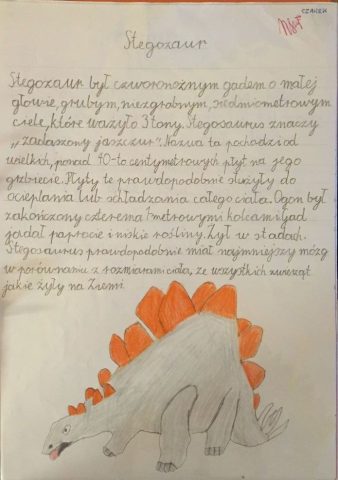 CZAREK
Stegozaur
Stegozaur był czworonożnym gadem o małej
głowie, grubym, niezgrabnym, siedmiometrowym
ciele, które ważyło 3 tony. Stegosaurus znaczy
„zadaszony jaszczur". Nazwa ta pochodzi od
wielkich, ponad 40-to centymetrowych płyt na jego
grzbiecie. Płyty te prawdopodobnie służyły do
ocieplania lub schładzania całego ciała. Ogon był
zakończony czterema 1-metrowymi kolcami. Jadł
paprocie i niskie rośliny. Żył w stadach.
Stegosaurus prawdopodobnie miał najmniejszy mózg
w porównaniu z rozmiarami ciała, ze wszystkich zwierząt
jakie żyły na Ziemi.